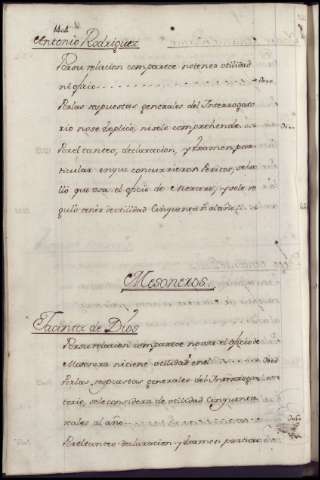 Antonio Rodriguez
Por su relacion comparece no tener utilidad
ni oficio
Por las respuestas generales del Interrogato
rio no se deplicò, ni se le comprehende
Por el tanteo, declaracion, y examen par
ticular en que concurrieron Peritos, se ha
llò que usa el oficio de Mercero, y se le re
gulò tener de utilidad Cinquenta rr.s al año
Mesoneros.
Jacinta de Dios
Por su relacion comparece no usa el oficio de
Mesonera ni tiene utilidad en el
Por las respuestas generales del Interroga
torio, se le considera de utilidad Cinquenta
reales al año
Por el tanteo declaracion y examen particu